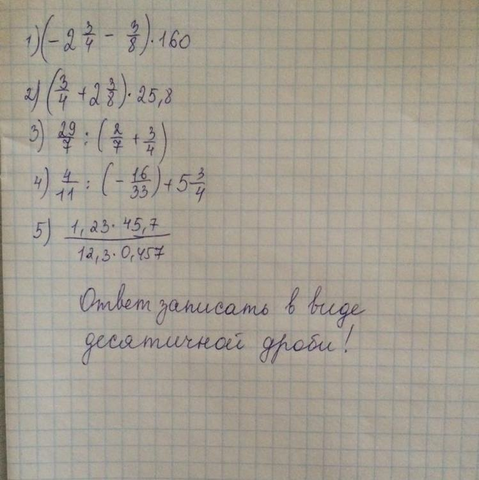 1) (-2 3/4 - 3/8) · 160
2) (3/4 + 2 3/8) · 25,8
3) 29/7 : (2/7 + 3/4)
4) 4/11 : (- 16/33) + 5 3/4
5) 1,23 · 45,7 / 12,3 · 0,457
Ответ записать в виде
десятичной дроби!